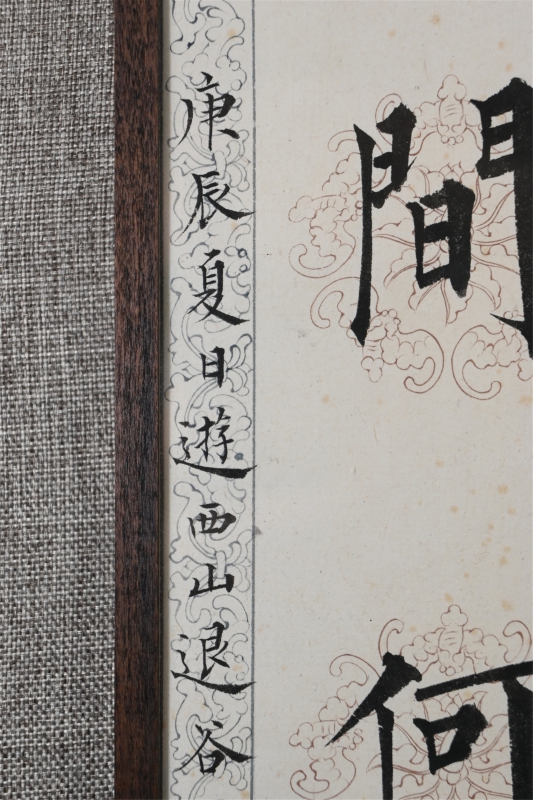 間何
庚辰夏日遊西山退谷